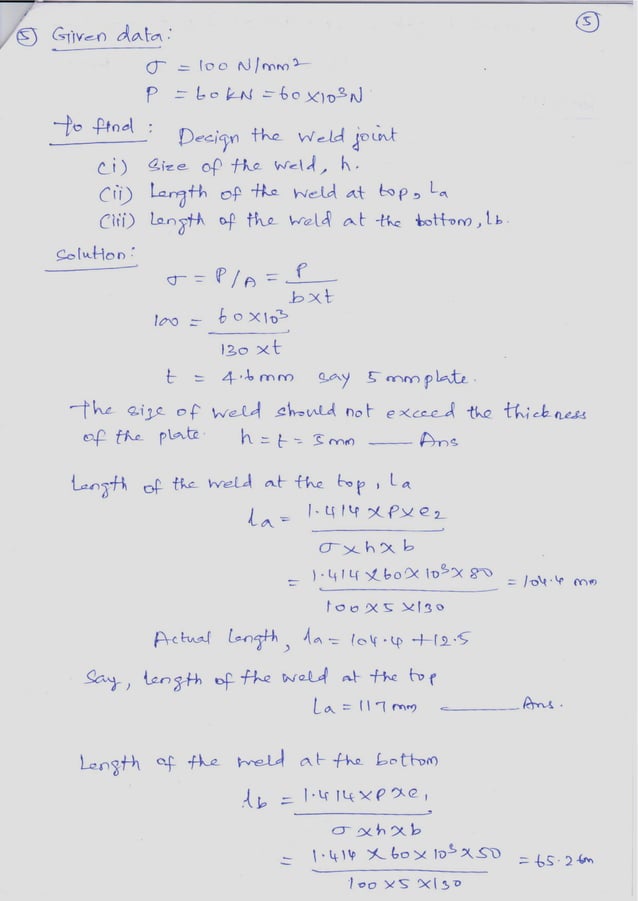 5
5 Given data:
σ = 100 N/mm2
P = 60 kN = 60 x 10^3 N
To find : Design the weld joint
(i) Size of the weld, h.
(ii) Length of the weld at top, La
(iii) Length of the weld at the bottom, lb.
Solution:
σ = P/A = P / b x t
100 = 60 x 10^3 / 130 x t
t = 4.6 mm say 5 mm plate.
The size of weld should not exceed the thickness
of the plate. h = t = 5 mm — Ans
Length of the weld at the top, La
la = 1.414 x P x e2 / σ x h x b
= 1.414 x 60 x 10^3 x 80 / 100 x 5 x 130 = 104.4 mm
Actual length, la = 104.4 + 12.5
Say, length of the weld at the top
La = 117 mm — Ans.
Length of the weld at the bottom
lb = 1.414 x P x e1 / σ x h x b
= 1.414 x 60 x 10^3 x 50 / 100 x 5 x 130 = 65.2